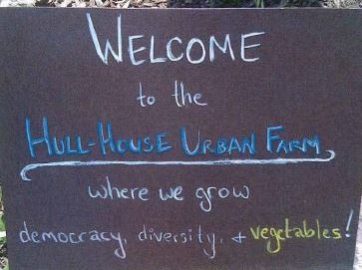 WELCOME
to the
HULL-HOUSE URBAN FARM,
where we grow
democracy, diversity, + vegetables!